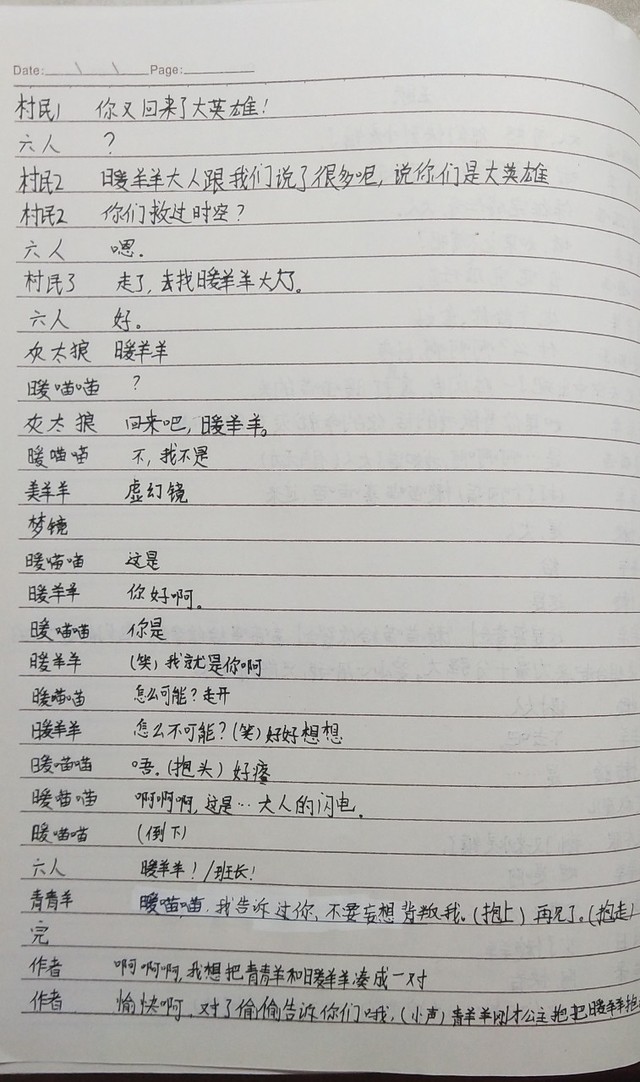 Date: \ \ Page:
村民1 你又回来了大英雄!
六人 ?
村民2 暖羊羊大人跟我们说了很多呢,说你们是大英雄
村民2 你们救过时空?
六人 嗯.
村民3 走了,去找暖羊羊大人。
六人 好。
灰太狼 暖羊羊
暖喵喵 ?
灰太狼 回来吧,暖羊羊。
暖喵喵 不,我不是
美羊羊 虚幻镜
梦镜
暖喵喵 这是
暖羊羊 你好啊。
暖喵喵 你是
暖羊羊 (笑)我就是你啊
暖喵喵 怎么可能?走开
暖羊羊 怎么不可能?(笑)好好想想
暖喵喵 唔.(抱头)好疼
暖喵喵 啊啊啊,这是…大人的闪电.
暖喵喵 (倒下)
六人 暖羊羊!/班长!
青青羊 暖喵喵.我告诉过你,不要妄想背叛我.(抱上)再见了.(抱走)
完
作者 啊啊啊,我想把青青羊和暖羊羊凑成一对
作者 愉快啊,对了偷偷告诉你们哦,(小声)青羊羊刚才公主抱把暖羊羊抱